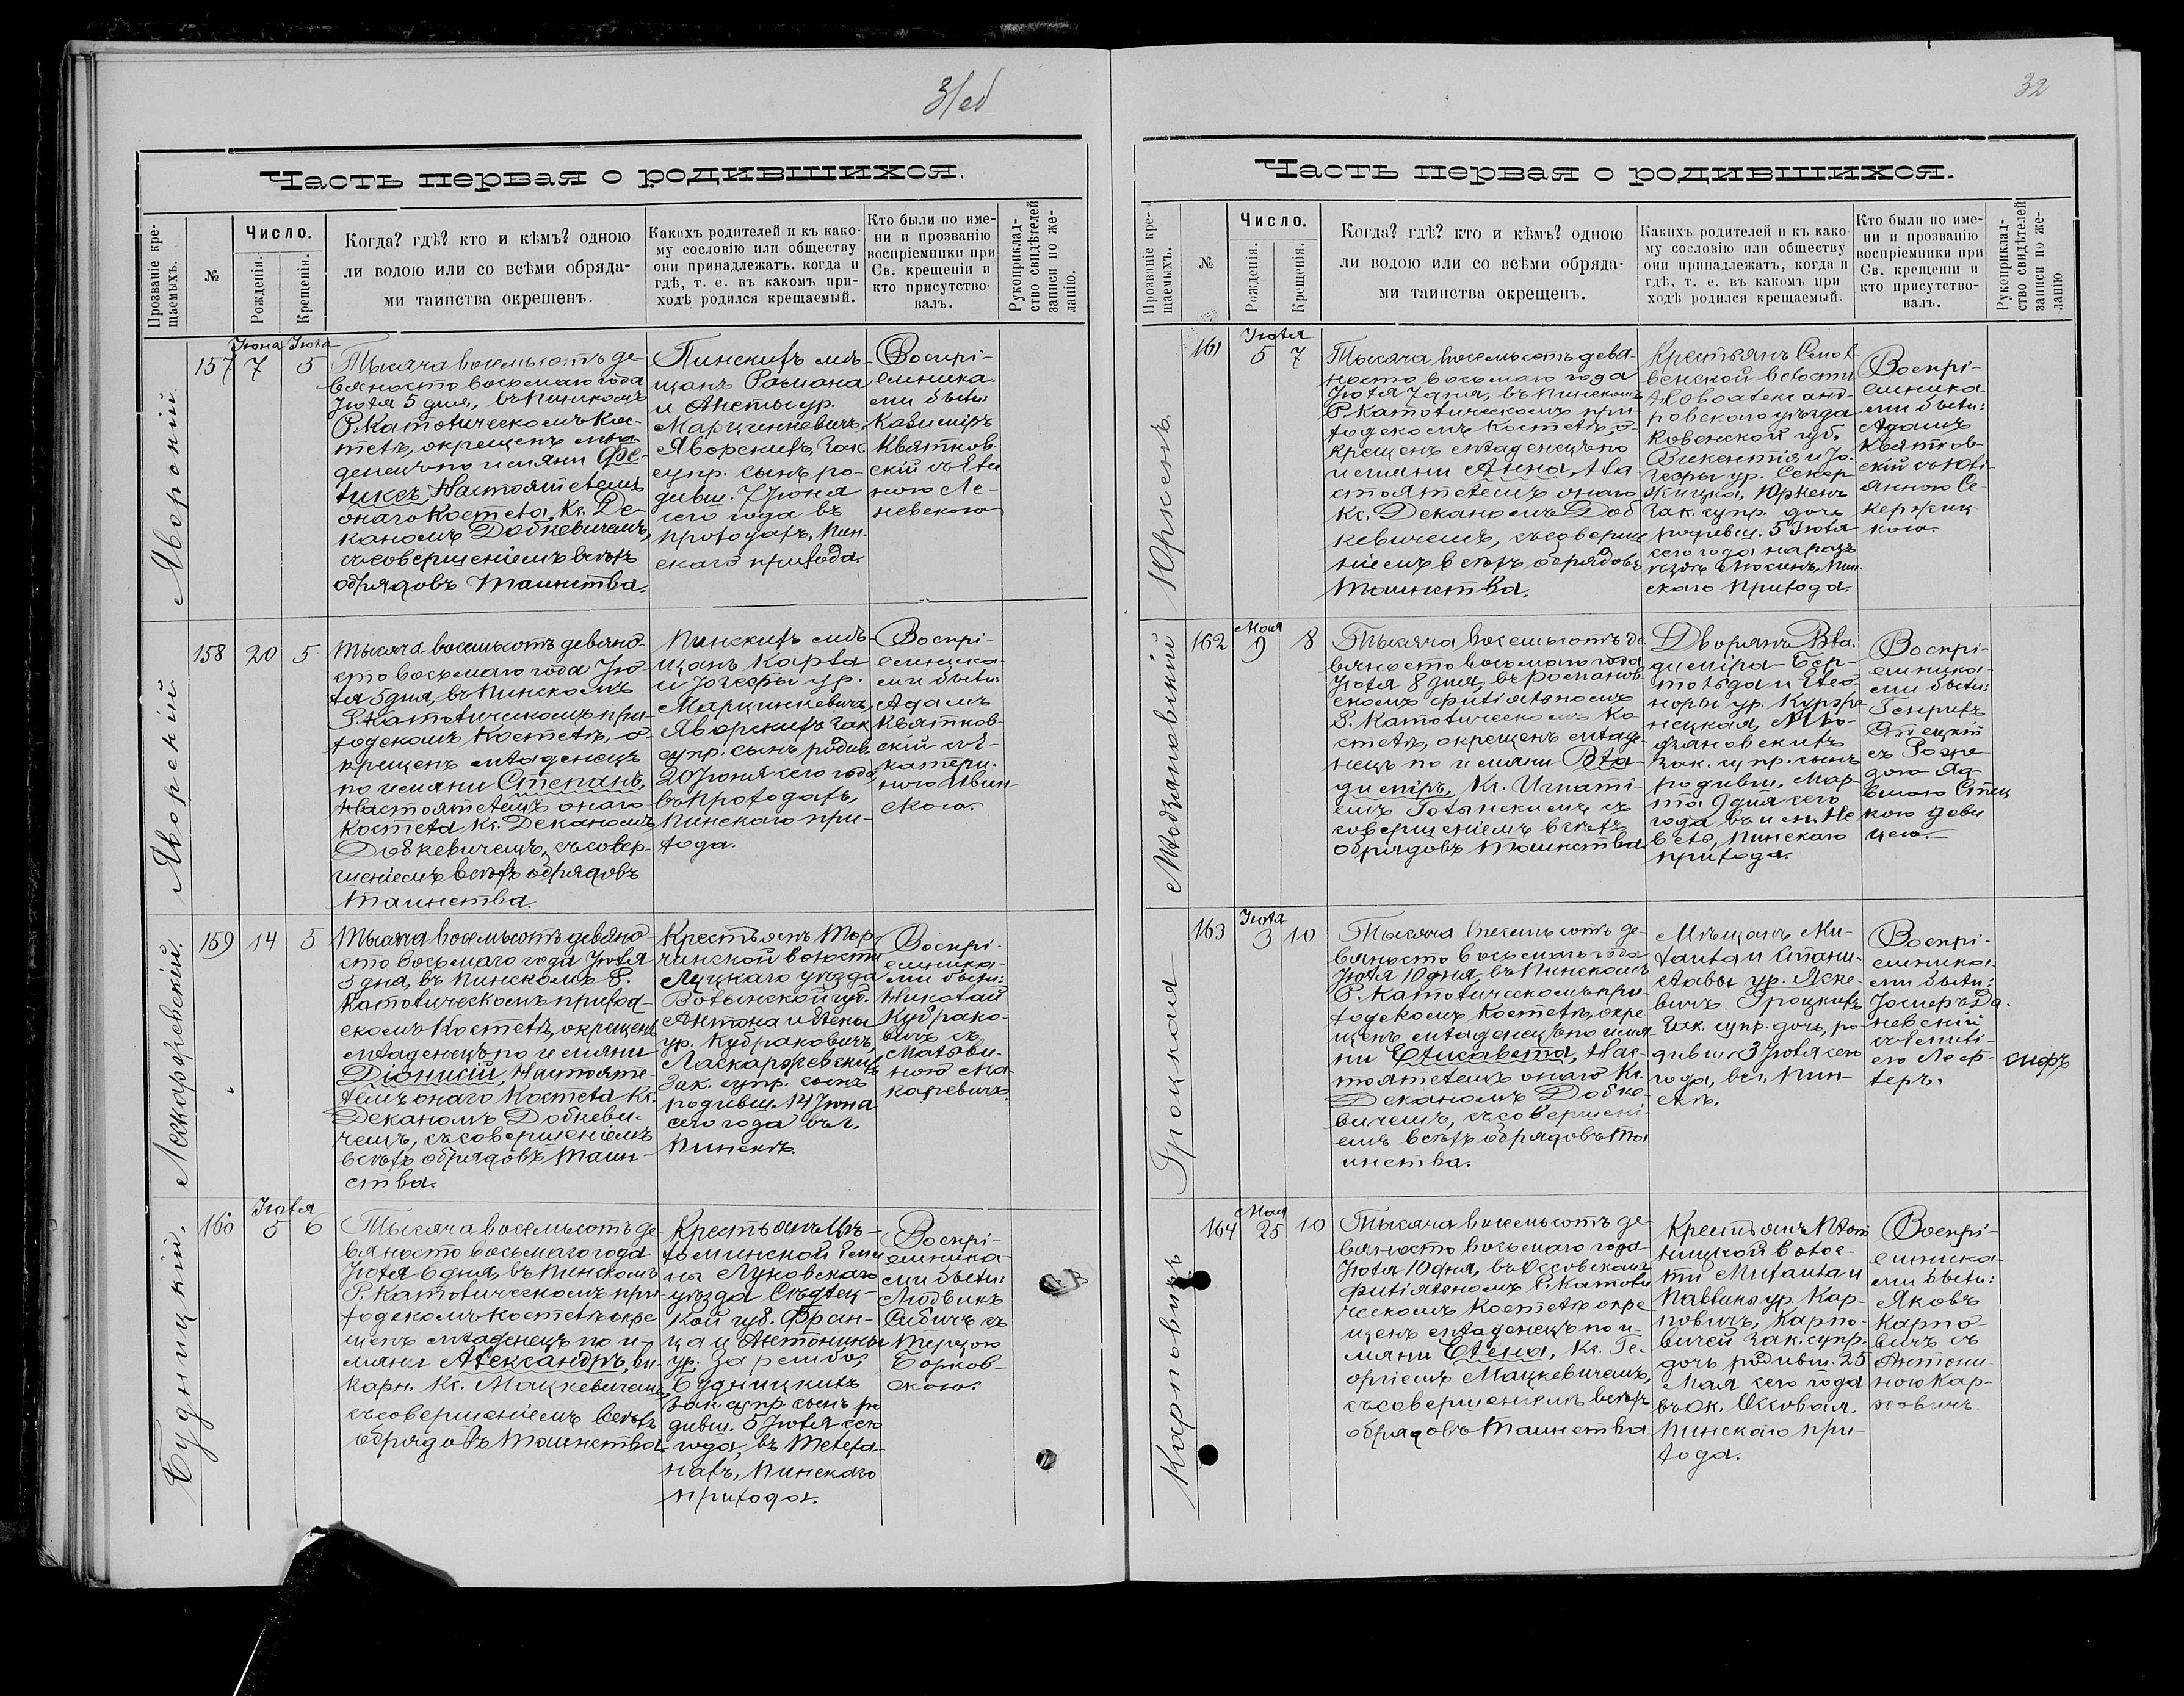 31об
Часть первая о родившихся.
Прозваніе кре-
щаемыхъ.
№
Число.
Рожденія.
Крещенія.
Когда? гдѣ? кто и кѣмъ? одною
ли водою или со всѣми обряда-
ми таинства окрещенъ.
Какихъ родителей и къ како-
му сословію или обществу
они принадлежатъ. когда и
гдѣ, т. е. въ какомъ при-
ходѣ родился крещаемый.
Кто были по име-
ни и прозванію
воспріемники при
Св. крещеніи и
кто присутство-
валъ.
Рукоприклад-
ство свидѣтелей
записи по же-
ланію.
Яворскій
157
Іюня Іюля
7 5
Тысяча восемьсотъ де-
вяносто восьмаго года
Іюля 5 дня, въ Пинскомъ
Р. Католическомъ Кос-
телѣ, окрещенъ мла-
денецъ по имяни Фе-
ликсъ, Настоятелемъ
онаго Костела, Кс. Де-
каномъ Добкевичемъ,
съ совершеніемъ всѣхъ
обрядовъ Таинства.
Пинскихъ мѣ-
щанъ Романа
и Анеты ур.
Марцинкевичъ,
Яворскихъ, зак.
супр. сынъ ро-
дивш. 7 Іюня
сего года въ
Проходахъ, Пин-
скаго прихода.
Воспрі-
емника-
ми были:
Казиміръ
Квятков-
скій съ Еле
ною Ле-
невскою
Яворскій
158 20 5
Тысяча восемьсотъ девяно-
сто восьмаго года Ію-
ля 5 дня, въ Пинскомъ
Р. Католическомъ при-
ходскомъ Костелѣ, о-
крещенъ младенецъ
по имяни Степанъ,
Настоятелемъ онаго
Костела Кс. Деканомъ
Добкевичемъ, съ совер-
шеніемъ всѣхъ обрядовъ
таинства.
Пинскихъ мѣ-
щанъ Карла
и Іозефы ур.
Марцинкевичъ,
Яворскихъ зак
супр. сынъ родив.
20 Іюня сего года,
въ Проходахъ,
Пинскаго при-
хода.
Воспрі-
емника-
ми были:
Адамъ
Квятков-
скій съ Е-
катери-
ною Явин-
скою.
Ласкаржевскій.
159 14 5
Тысяча восемьсотъ девяно-
сто восьмаго года Іюля
5 дня, въ Пинскомъ Р.
Католическомъ приход-
скомъ Костелѣ, окрещенъ
младенецъ по имяни
Діонисій, Настояте-
лемъ онаго Костела Кс.
Деканомъ Добкеви-
чемъ, съ совершеніемъ
всѣхъ обрядовъ Таин-
ства.
Крестьянъ Тор-
чинской волости
Луцкаго уѣзда
Волынской губ.
Антона и Елены
ур. Кубраковичъ,
Ласкаржевскихъ
зак. супр. сынъ
родивш. 14 Іюня
сего года въ г.
Пинскѣ.
Воспрі-
емника-
ми были:
Николай
Кубрако-
вичъ съ
Мальви-
ною Ма-
каревичъ.
Будницкій.
160
Іюля
5 6
Тысяча восемьсотъ де-
вяносто восьмаго года
Іюля 6 дня, въ Пинскомъ
Р. Католическомъ при-
ходскомъ Костелѣ окре
щенъ младенецъ по и-
мяни Александръ, ви-
карн. Кс. Мацкевичемъ,
съ совершеніемъ всѣхъ
обрядовъ Таинства.
Крестьянъ Цѣ-
хоминской гми
ны Луковскаго
уѣзда Сѣдлец-
кой губ. Фран-
ца и Антонины
ур. Заремба,
Будницкихъ
зак. супр. сынъ ро
дивш. 5 Іюля сего
года, въ Телеха-
нахъ, Пинскаго
прихода.
Воспрі-
емника-
ми были:
Людвикъ
Сибичъ съ
Терезою
Борков-
скою.
32
Часть первая о родившихся.
Прозваніе кре-
щаемыхъ.
№
Число.
Рожденія.
Крещенія.
Когда? гдѣ? кто и кѣмъ? одною
ли водою или со всѣми обряда-
ми таинства окрещенъ.
Какихъ родителей и къ како
му сословію или обществу
они принадлежатъ, когда и
гдѣ, т. е. въ какомъ при
ходѣ родился крещаемый.
Кто были по име-
ни и прозванію
воспріемники при
Св. крещеніи и
кто присутство-
валъ.
Рукоприклад-
ство свидѣтелей
записи по же-
ланію
Юржень.
161
Іюля
5 7
Тысяча восемьсотъ девя-
носто восьмаго года
Іюля 7 дня, въ Пинскомъ
Р. Католическомъ при-
ходскомъ Костелѣ, о-
крещенъ младенецъ по
имяни Анна, На-
стоятелемъ онаго
Кс. Деканомъ Доб
кевичемъ, съ соверше
ніемъ всѣхъ обрядовъ
таинства.
Крестьянъ
венской волости
Новоалександ-
ровскаго уѣзда
Ковенской губ.
Викентія и Іо-
зефы ур. Секер-
жицка, Юржень
зак. супр. дочь
родивш. 5 Іюля
сего года на разъ
ѣздѣ Пин-
скаго Прихода.
Воспрі-
емника-
ми были:
Адамъ
Квятков-
скій съ Юлі-
янною Се-
кержиц-
кою.
Млодзяновскій
162
Мая
9 8
Тысяча восемьсотъ де
вяносто восьмаго года
Іюля 8 дня, въ Романов
скомъ филіяльномъ
Р. Католическомъ Ко-
стелѣ, окрещенъ младе-
нецъ по имяни Вла-
диміръ, Кс. Игнаті-
емъ Гольнскимъ съ
совершеніемъ всѣхъ
обрядовъ таинства.
Дворянъ Вла-
диміра-Бер-
тольда и Елео-
норы ур. Куржe-
нецкая, Мло-
дзяновскихъ
зак. супр. сынъ
родивш. Мар-
та 9 дня сего
года въ им. Не
вель, Пинскаго
прихода.
Воспрі-
емника-
ми были:
Генрихъ
Стецкій
съ
Яд-
вигою Стец
кою деви
цею.
Гроцкая
163
Іюля
3 10
Тысяча восемьсотъ де-
вяносто восьмаго года
Іюля 10 дня, въ Пинскомъ
Р. Католическомъ при-
ходскомъ Костелѣ, окре
щенъ младенецъ по имя-
ни Елисавета, Нас-
тоятелемъ онаго Кс.
Деканомъ Добке-
вичемъ, съ совершені-
емъ всѣхъ обрядовъ та
инства.
Мѣщанъ Ми-
хаила и Стани-
славы ур. Яске-
вичъ Гроцкихъ
зак. супр. дочь, ро-
дивш. 3 Іюля сего
года, въ г. Пин-
скѣ.
Воспрі-
емника-
ми были:
Іосифъ Да-
невскій
съ Емилі-
ею Леф-
леръ.
сифъ
Карповичъ
164
Мая
25 10
Тысяча восемьсотъ де-
вяносто восьмаго года
Іюля 10 дня, въ Оссовскомъ
филіяльномъ Р. Католи
ческомъ Костелѣ окре
щенъ младенецъ по и-
мяни Елена, Кс. Ге-
оргіемъ Мацкевичемъ,
съ совершеніемъ всѣхъ
обрядовъ Таинства
Крестьянъ Плот
ницкой волос-
ти Михаила и
Павлины ур. Кар-
повичъ, Карпо-
вичей зак. супр.
дочь родивш. 25
Мая сего года
въ ок. Оссовая.
Пинскаго при-
хода.
Воспрі-
емника-
ми были:
Яковъ
Карпо-
вичъ съ
Антони-
ною Кар-
повичъ.